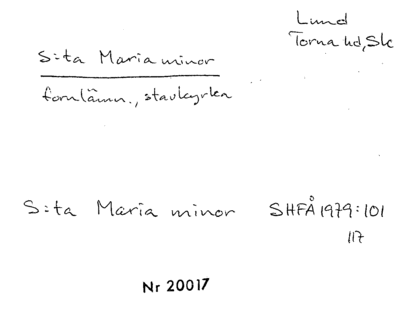 Lund
Torna hd, Sk
S:ta Maria minor
fornlämn., stavkyrka
S:ta Maria minor SHFÅ 1979:101
117
Nr 20017